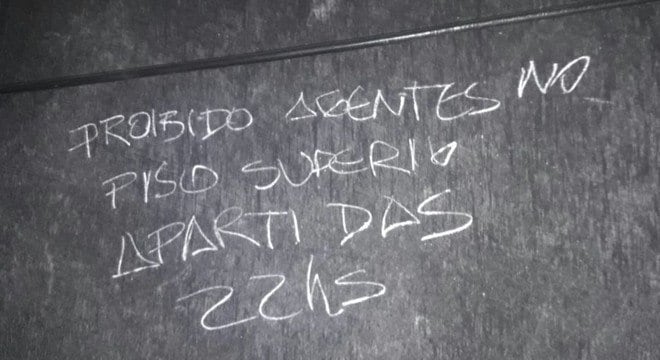 PROIBIDO AGENTES NO
PISO SUPERIO
APARTI DAS
22hs